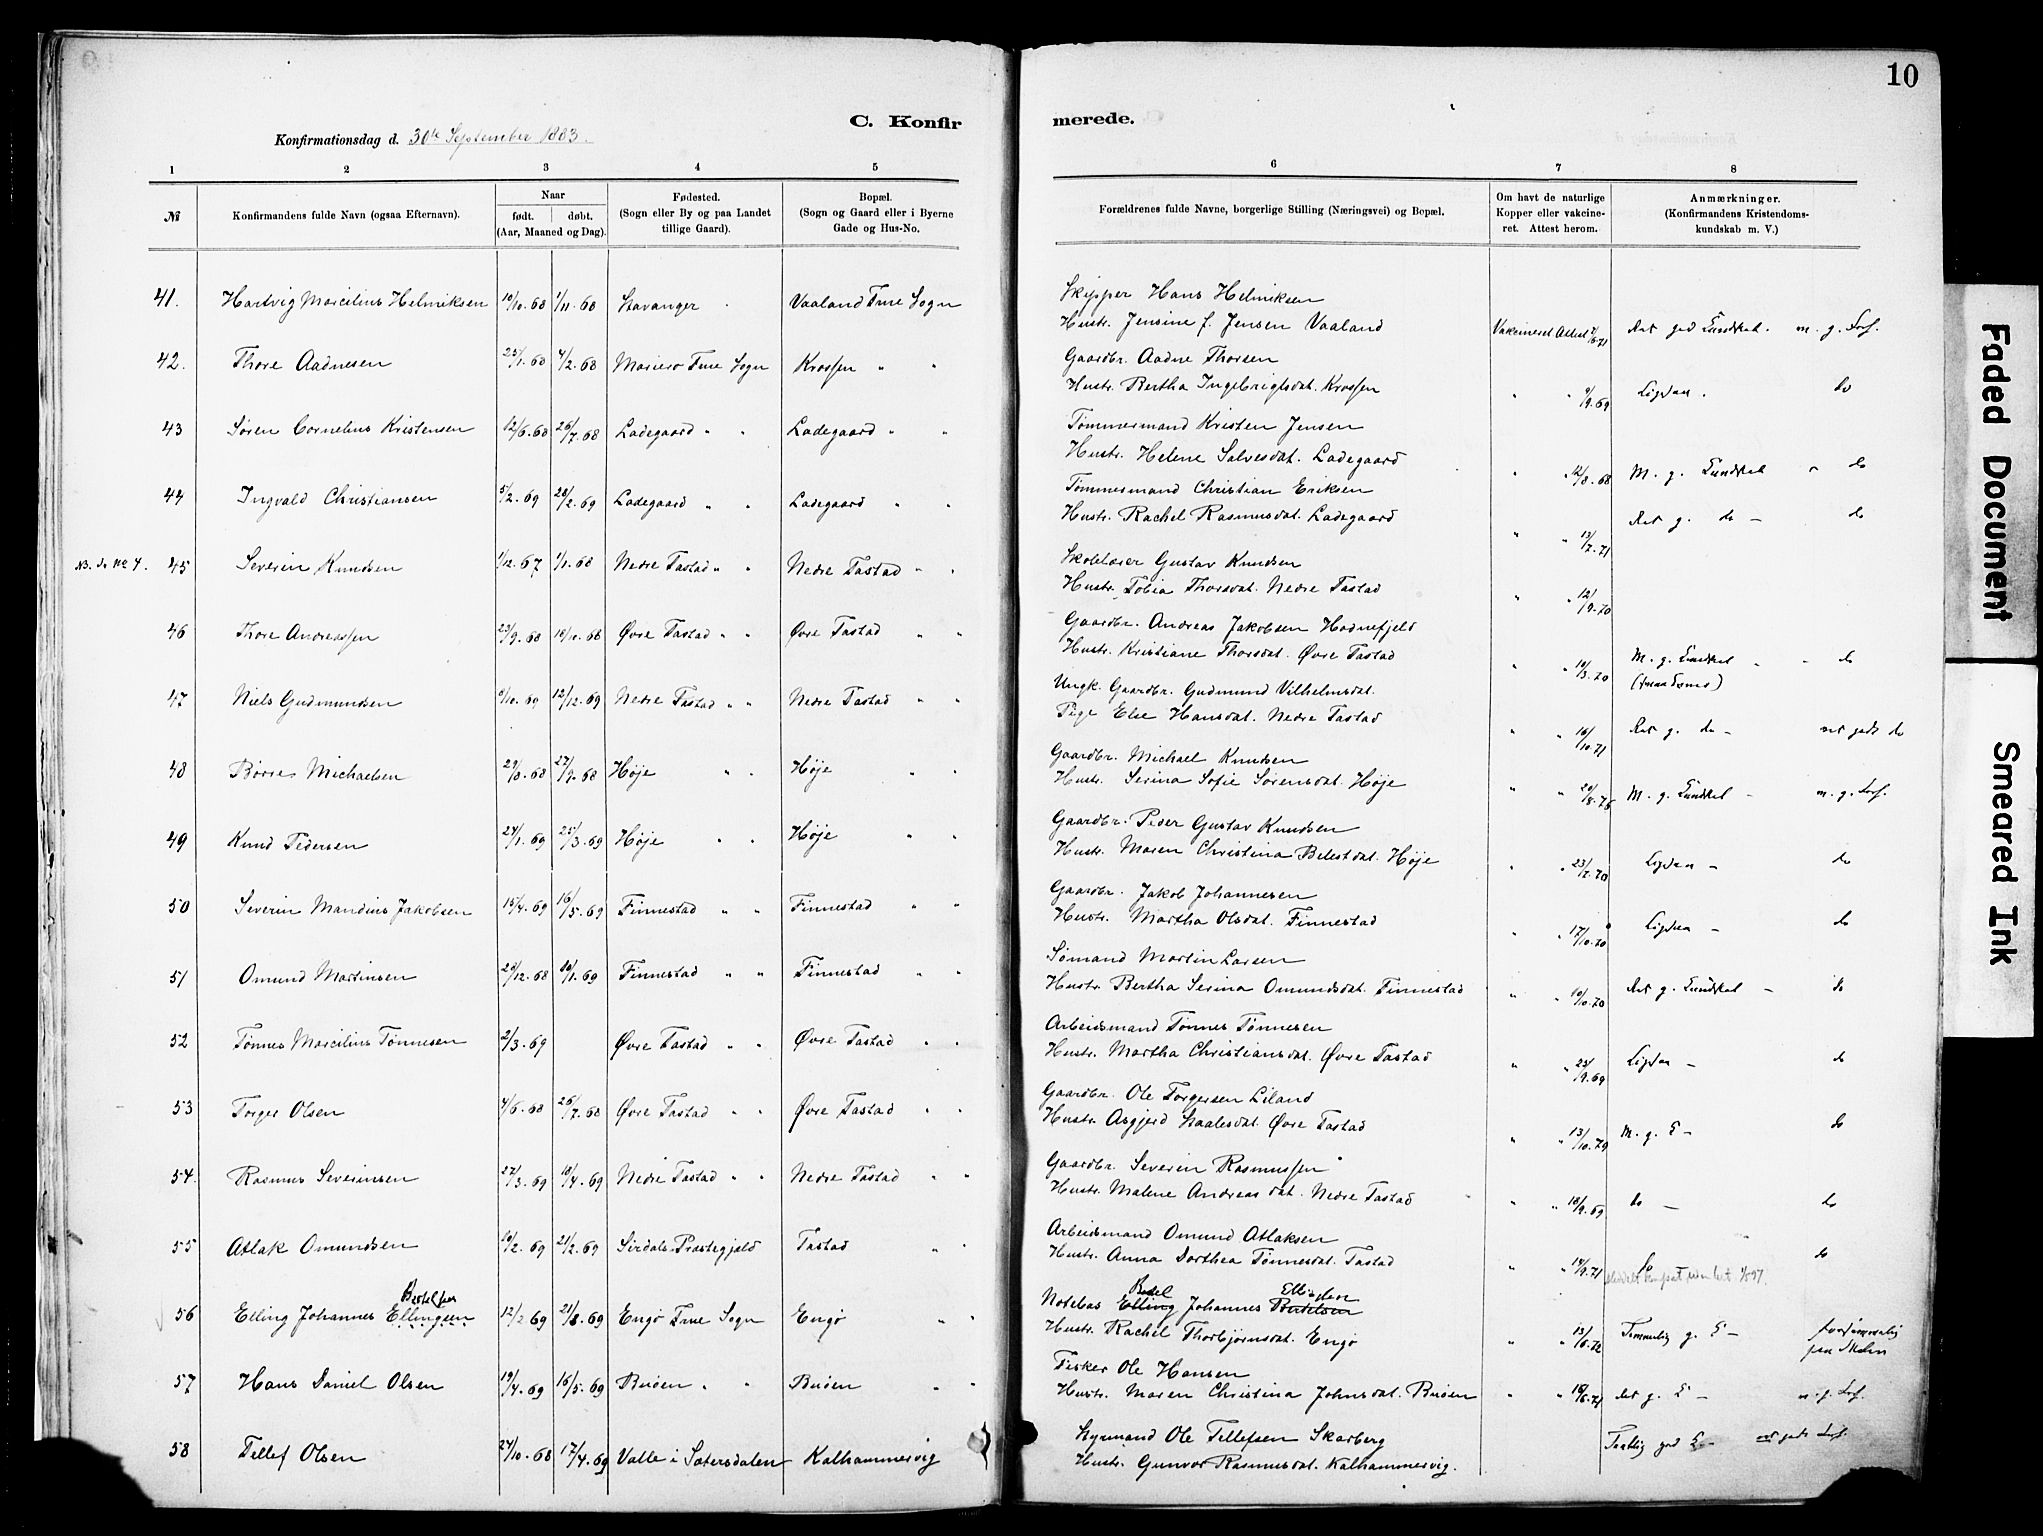 10
C. Konfir merede.
Konfirmationsdag d. 30te September 1883.
1 2 3 4 5 6 7 8
№ Konfirmandens fulde Navn (ogsaa Efternavn). Naar født. døbt. (Aar, Maaned og Dag). Fødested. (Sogn eller By og paa Landet tillige Gaard). Bopæl. (Sogn og Gaard eller i Byerne Gade og Hus-No. Forældrenes fulde Navne, borgerlige Stilling (Næringsvei) og Bopæl. Om havt de naturlige Kopper eller vakcineret. Attest herom. Anmærkninger. (Konfirmandens Kristendomskundskab m. V.)
41. Hartvig Marcilius Helmiksen 10/10.68 1/11.68 Stavanger Vaaland Frue Sogn Skipper Hans Helmiksen
Hustr. Jensine f. Jensen Vaaland Vakcineret Attest Ret god Kundskab. m. g. Forh.
42. Thore Aadnesen 25/1.68 4/2.68 Mariero Frue Sogn Krossen " " Gaardbr. Aadne Thorsen
Hustr. Bertha Ingebrigtsdat. Krossen " " 9/9.69 Ligesaa. do
43 Søren Cornelius Kristensen 12/6.68 26/7.68 Ladegaard " " Ladegaard " " Tømmermand Kristen Jensen
Hustr. Helene Salvesdat. Ladegaard " " 12/8.68 M. g. Kundskab do
44 Ingvald Christiansen 5/2.69 28/2.69 Ladegaard " " Ladegaard " " Tømmermand Christian Eriksen
Hustr. Rachel Rasmusdat. Ladegaard " " 13/7.71 Ret g. do – do
45 Severin Knudsen 1/12.67 1/1.68 Nedre Tastad " " Nedre Tastad " " Skolelærer Gustav Knudsen
Hustr. Tobia Thorsdat. Nedre Tastad " " 12/9.70
46 Thore Andreassen 23/9.68 18/10.68 Øvre Tastad " " Øvre Tastad " " Gaardbr. Andreas Jakobsen Hodnefjeld
Hustr. Kristiane Thorsdat. Øvre Tastad " " 10/3.70 M. g. Kundskab do
47 Niels Gudmundsen 9/10.69 12/12.69 Nedre Tastad " " Nedre Tastad " " Ungk. Gaardbr. Gudmund Vilhelmsdat.
Pige Else Hansdat. Nedre Tastad " " 16/10.71 Ret g. do – do
48 Børre Michaelsen 29/8.68 27/9.68 Høje " " Høje " " Gaardbr. Michael Knudsen
Hustr. Serina Sofie Sørensdat. Høje " " 20/8.75 M. g. Kundskab m. g. Forh.
49 Knud Pedersen 24/1.69 25/3.69 Høje " " Høje " " Gaardbr. Peder Gustav Knudsen
Hustr. Maren Christina Belestdat. Høje " " 23/7.70 Ligesaa – do
50 Severin Mandius Jakobsen 15/4.69 16/5.69 Finnestad " " Finnestad " " Gaardbr. Jakob Johannesen
Hustr. Martha Olsdat. Finnestad " " 17/10.70 Ligesaa – do
51 Omund Martinsen 28/12.68 10/1.69 Finnestad " " Finnestad " " Sømand Martin Larsen
Hustr. Bertha Serina Omundsdat. Finnestad " " 10/10.70 Ret g. Kundskab – do
52 Tønnes Marcilius Tønnesen 2/3.69 Øvre Tastad " " Øvre Tastad " " Arbeidsmand Tønnes Tønnesen
Hustr. Martha Christiansdat. Øvre Tastad " " 25/9.69 Ligesaa – do
53 Torger Olsen 4/6.68 26/7.68 Øvre Tastad " " Øvre Tastad " " Gaardbr. Ole Torgersen Liland
Hustr. Asgjerd Saalesdat. Øvre Tastad " " 13/10.79 M. g. K – do
54. Rasmus Severinsen 27/3.69 18/4.69 Nedre Tastad " " Nedre Tastad " " Gaardbr. Severin Rasmussen
Hustr. Malene Andreasdat. Nedre Tastad " " 18/9.69 do – do
55 Atlak Omundsen 10/2.69 21/2.69 Sirdals Præstegjeld Tastad " Arbeidsmand Omund Atlaksen
Hustr. Anna Dorthea Tønnesdat. Tastad " " 14/9.71 do do
56 Elling Johannes Ellingsen Bertelsen 12/2.69 21/3.69 Engø Frue Sogn Engø " " Notebas Elling Bertel Johannes Bertelsen Ellingsen
Hustr. Rachel Thorbjørnsdat. Engø " " 13/6.72 Temmelig g. K – forsømmelig paa Skolen
57 Hans Daniel Olsen 19/4.69 16/5.69 Buøen " " Buøen " " Fisker Ole Hansen
Hustr. Maren Christina Johnsdat. Buøen " " 18/6.71 Ret g. K – m. g. Forh.
58 Tellef Olsen 24/10.68 17/4.69 Valle i Sætersdalen Kalhammervig Ole Tellefsen Skarberg
Hustr. Gunvor Rasmusdat. Kalhammervig.
Faded Document
Smeared Ink